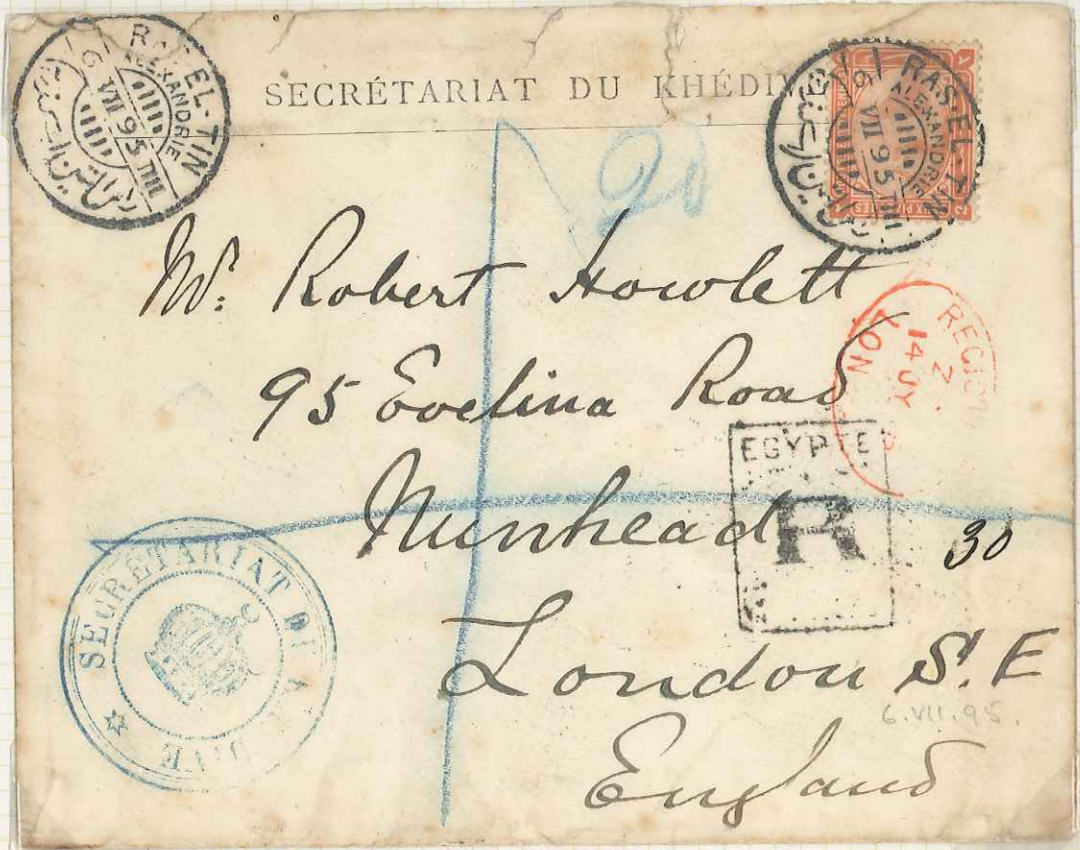 RAS-EL-TIN
ALEXANDRIE
6 VII 95 TIII
SECRÉTARIAT DU KHÉDIV
RAS-EL-TIN
ALEXANDRIE
6 VII 95 TIII
20
Mr. Robert Howlett
95 Evelina Road
Nunhead
London S.E
England
LON
Z
14 JY
EGYPTE
R
30
6.VII.95.
SECRÉTARIAT DU KHÉDIVE